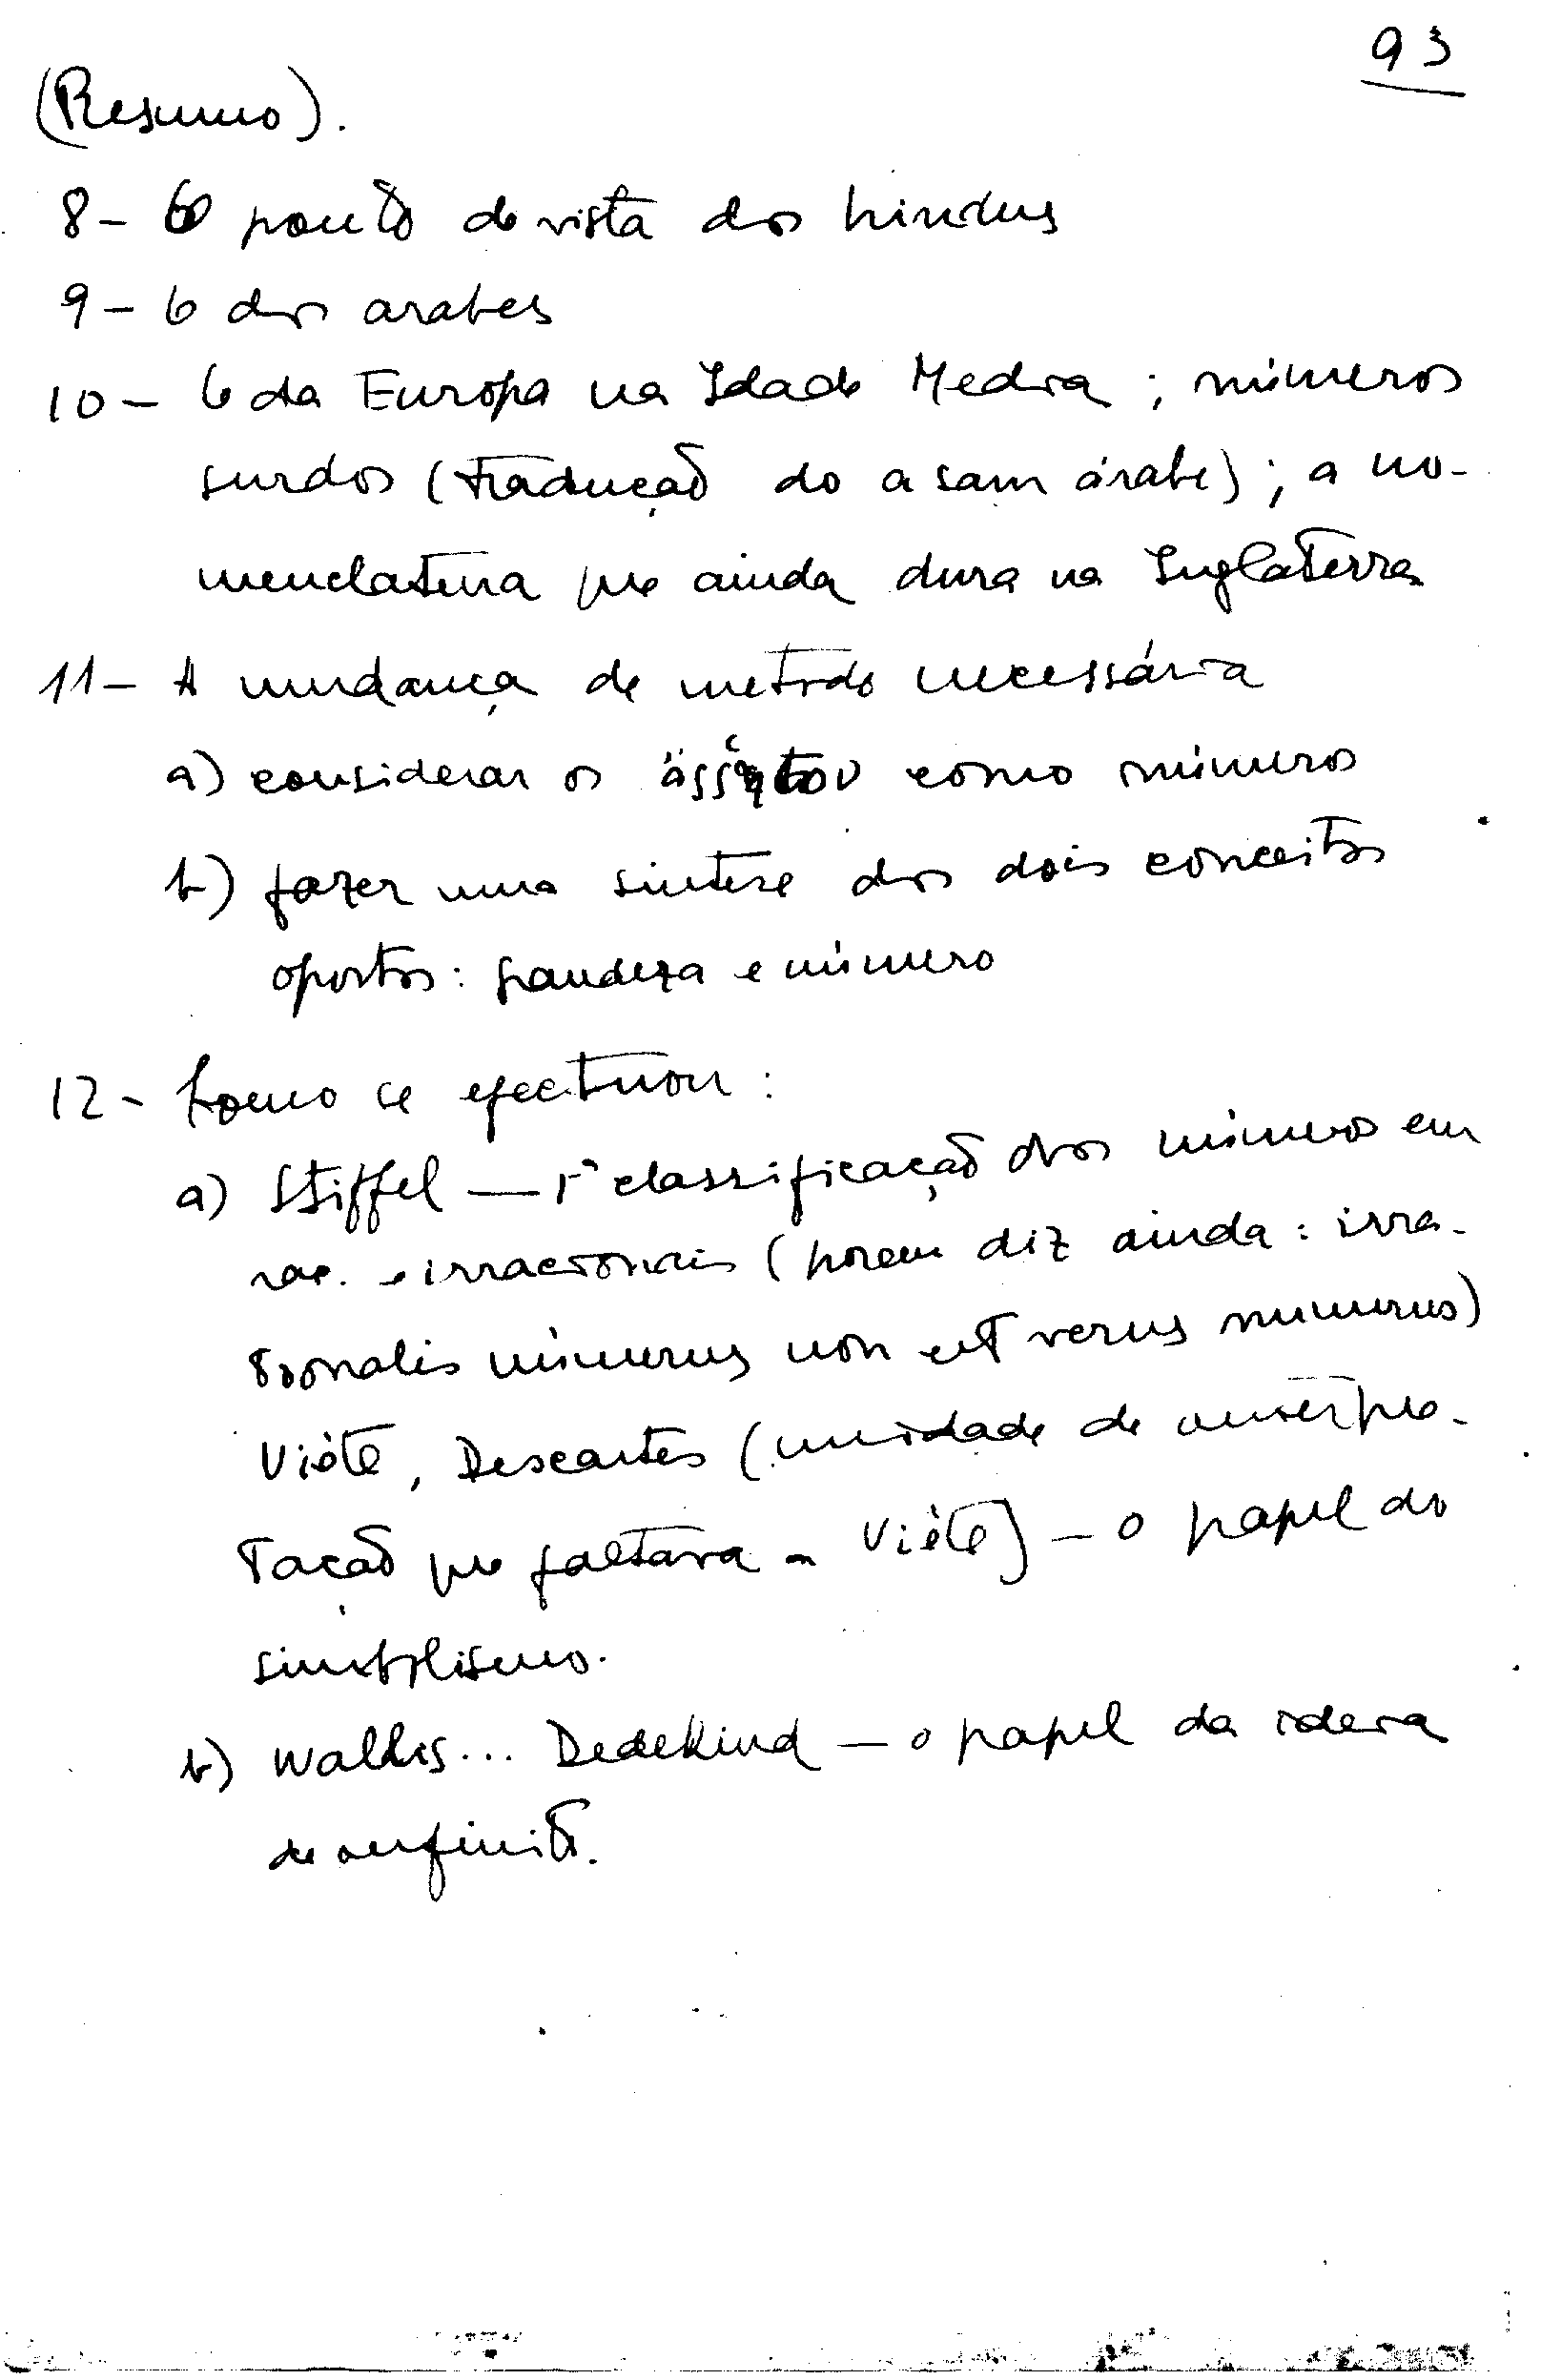 93
(Resumo).
8 - O ponto de vista dos hindus
9 - O dos arabes
10 - O da Europa na Idade Media ; números
surdos (tradução do asam árabe) ; a no-
menclatura que ainda dura na Inglaterra
11 - A mudança de metodo necessária
a) considerar os como números
b) fazer uma sintese dos dois conceitos
opostos : grandeza e número
12 - Como se efectuou :
a) Stiffel — 1ª classificação dos números em
rac. e irracionais (porem diz ainda : irra-
tionalis númerus non est verus numerus)
Viète, Descartes (unidade de interpre-
tação que faltava a Viète) — o papel do
simbolismo.
b) Wallis... Dedekind — o papel da ideia
de infinito.